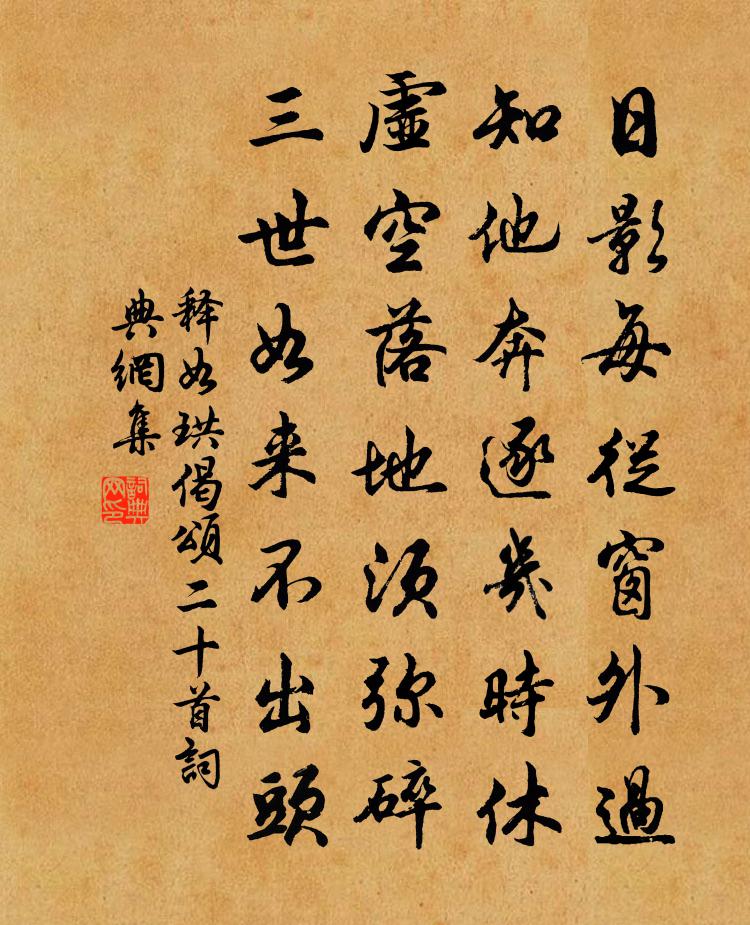 日影每從窗外過
知他奔逐幾時休
虛空落地須弥碎
三世如来不出頭
释如珙偈頌二十首詞
典網集
詞典
网印